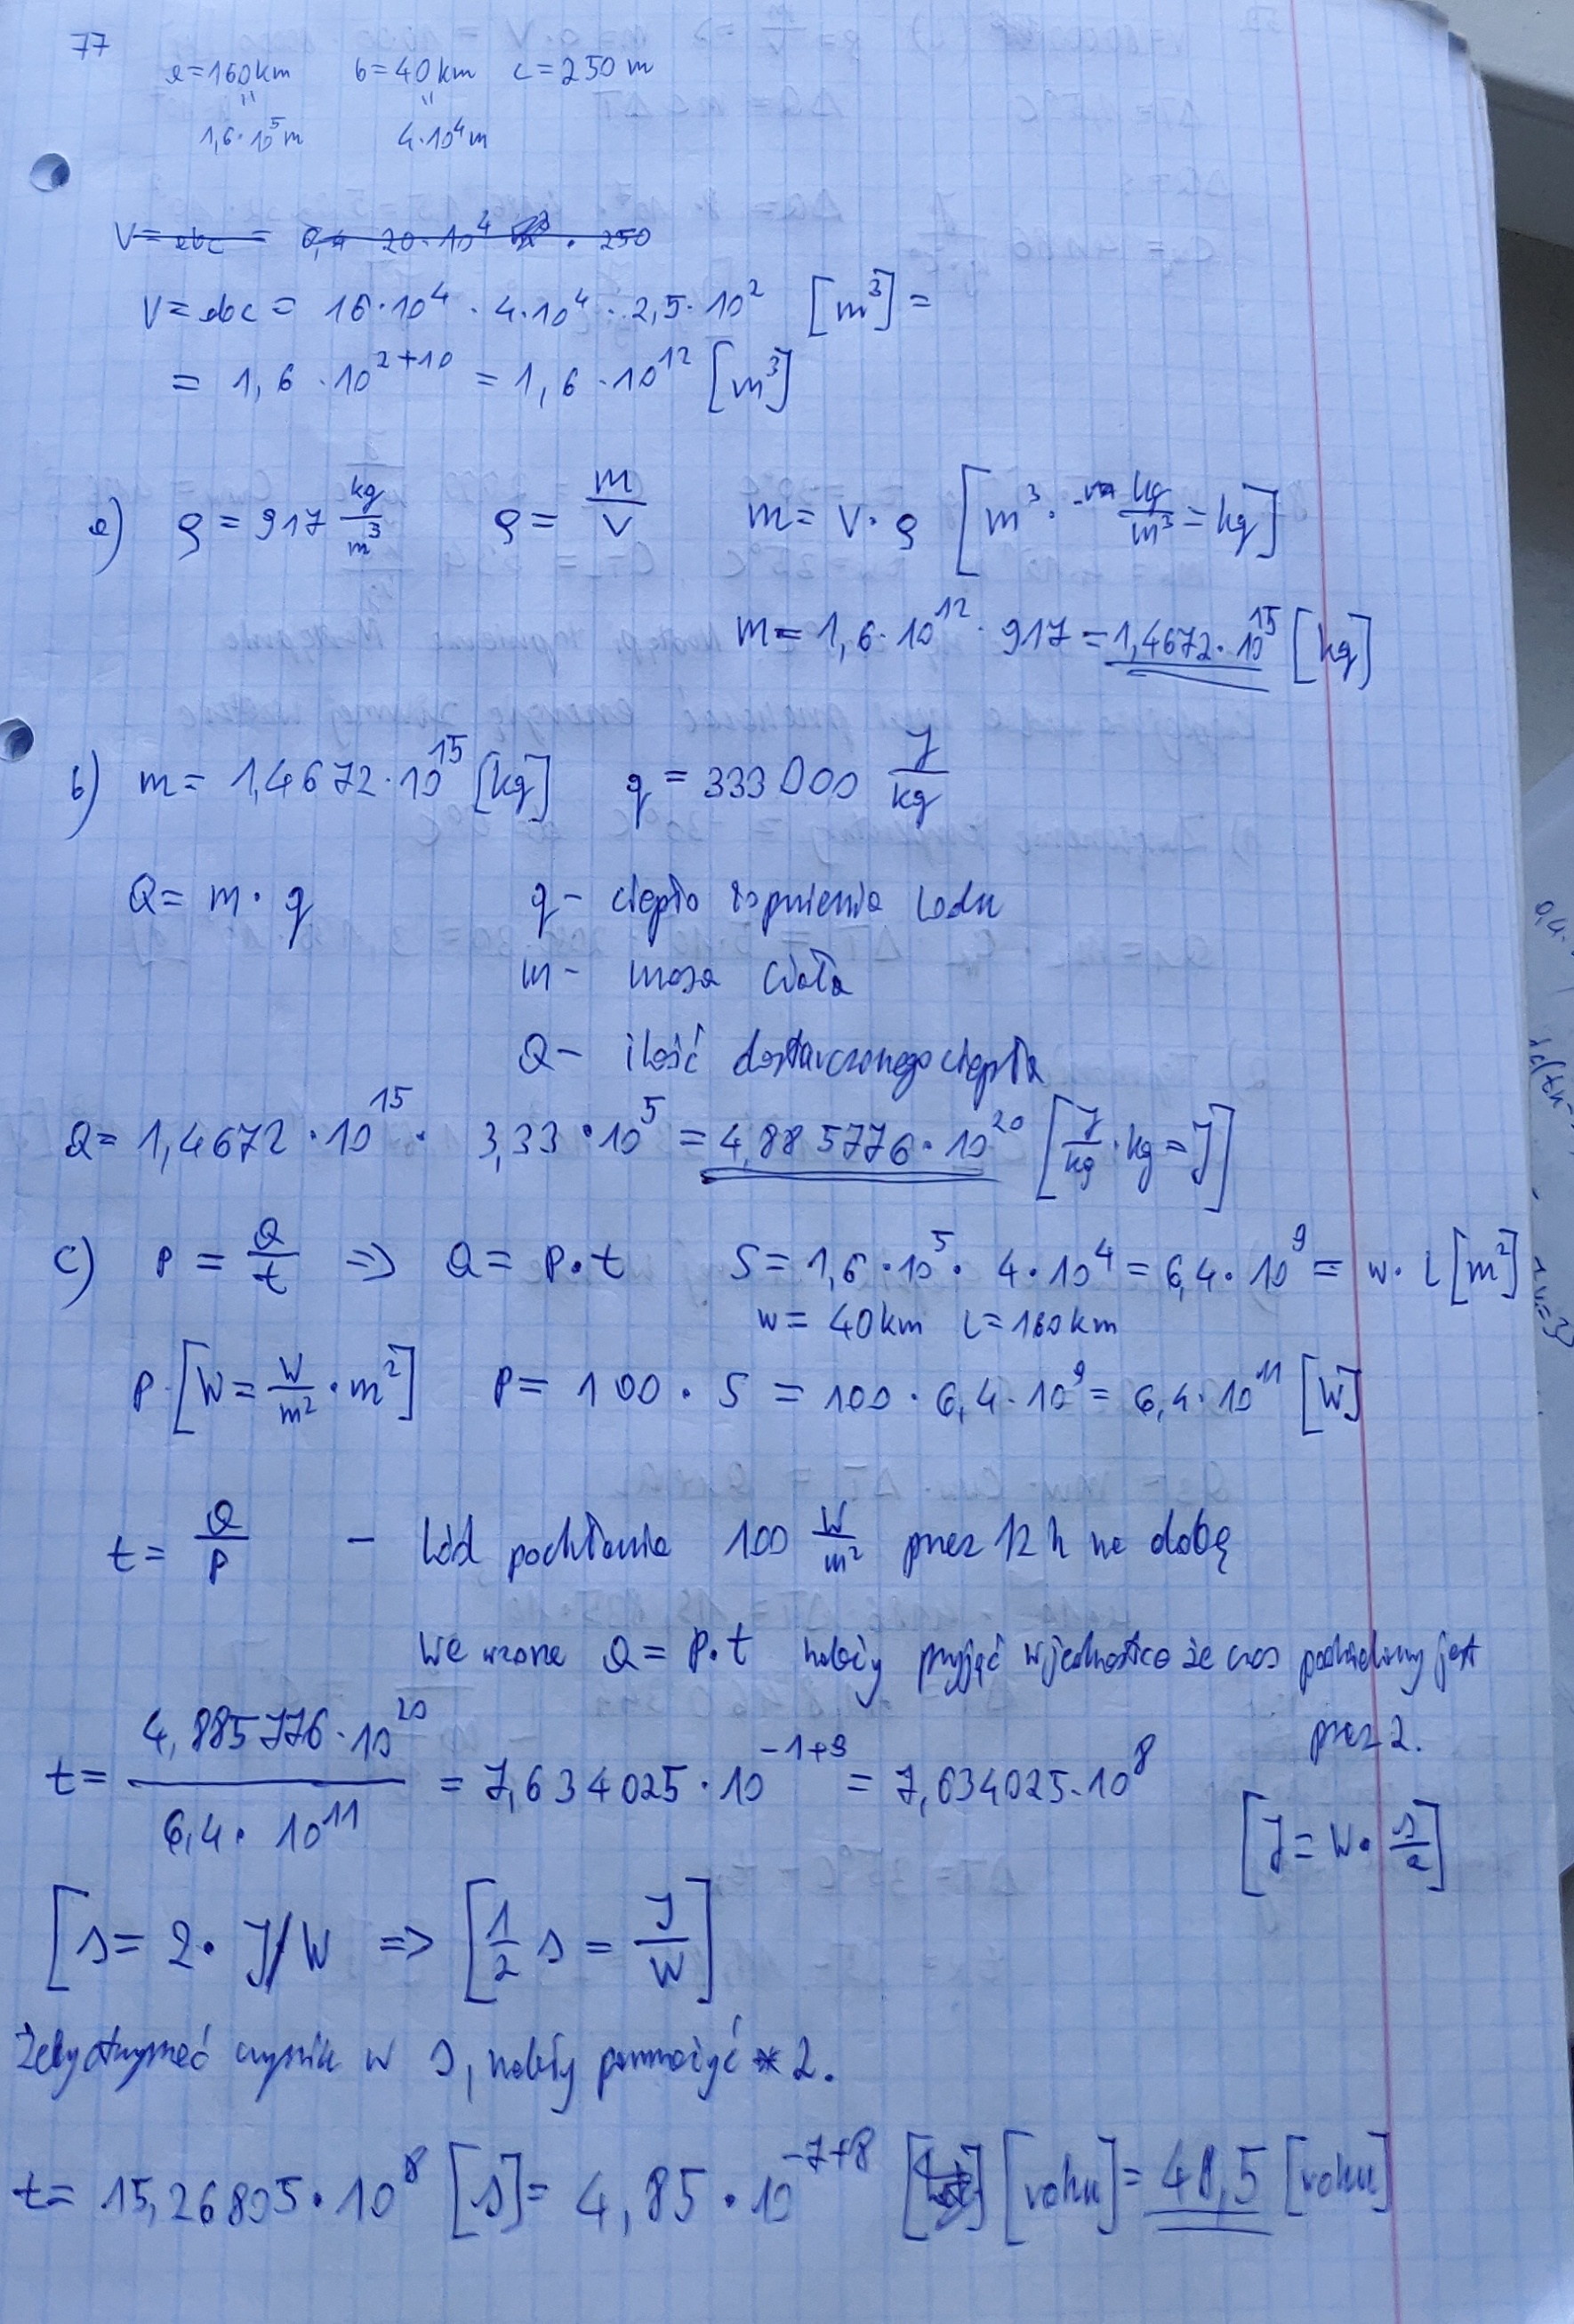 77
a=160km b=40km c=250m
= =
1,6·10⁵m 4·10⁴m
V=abc = 0,4 20·10⁴ · 250
V=abc = 16·10⁴ · 4·10⁴ · 2,5·10² [m³] =
= 1,6·10²⁺¹⁰ = 1,6·10¹² [m³]
a) ρ = 917 kg/m³ ρ = m/V m = V·ρ [m³ · kg/m³ = kg]
m = 1,6·10¹² · 917 = 1,4672·10¹⁵ [kg]
b) m = 1,4672·10¹⁵ [kg] q = 333 000 J/kg
Q = m·q q – ciepło topnienia lodu
m – masa ciała
Q – ilość dostarczonego ciepła
Q = 1,4672·10¹⁵ · 3,33·10⁵ = 4,885776·10²⁰ [J/kg · kg = J]
c) P = Q/t => Q = P·t S = 1,6·10⁵ · 4·10⁴ = 6,4·10⁹ = w·l [m²]
w = 40km l = 160km
P [W = W/m² · m²] P = 100 · S = 100 · 6,4·10⁹ = 6,4·10¹¹ [W]
t = Q/P – Lód pochłania 100 W/m² przez 12 h na dobę
We wzorze Q = P·t należy przyjąć w jednostce że czas podzielony jest
przez 2.
t = 4,885776·10²⁰ / 6,4·10¹¹ = 7,634025·10⁻¹⁺⁹ = 7,634025·10⁸
[J = W · s/2]
[s = 2· J/W => [1/2 s = J/W]
Żeby otrzymać wynik w s, należy pomnożyć * 2.
t = 15,26805·10⁸ [s] = 4,85·10⁻⁷⁺⁸ [roku] = 48,5 [roku]